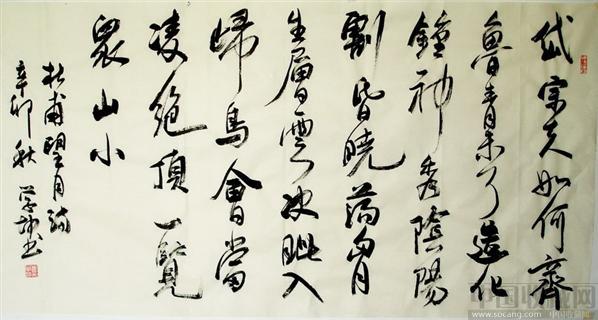 岱宗夫如何齊
魯青未了造化
鐘神秀陰陽
割昏曉蕩胷
生層雲決眦入
歸鳥會當
凌絕頂一覽
眾山小
杜甫望月
辛卯秋 書
中国收藏网
www.socang.com 中国收藏网